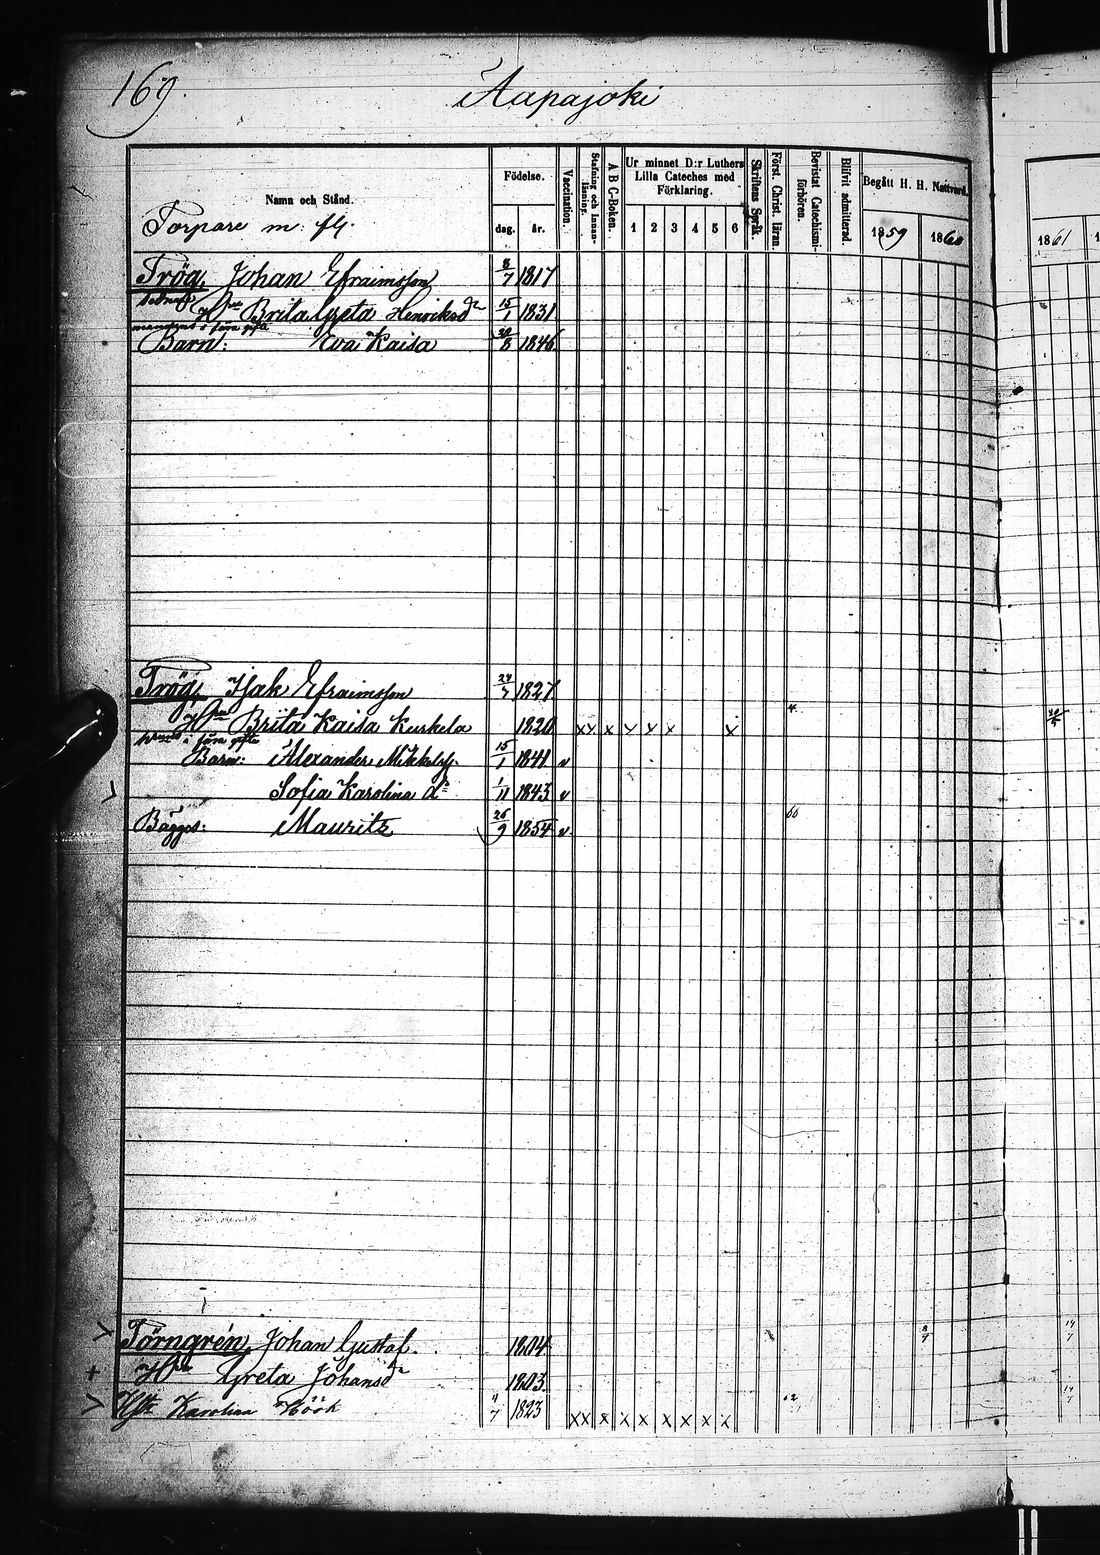 169.
Aapajoki
Namn och Stånd.
Torpare m. fl.
Födelse.
dag. år.
Vaccination.
Stafning och Innanläsning.
A B C-Boken.
Ur minnet D:r Luthers Lilla Cateches med Förklaring.
1 2 3 4 5 6
Skriftens Språk.
Först. Christ. läran.
Bevistat Catechismiförhören.
Blifvit admitterad.
Begått H. H. Nattvard.
1859 1860 1861
Trög, Johan Efraimsson 8/7 1817
Hu Brita Greta Henriksdr 15/1 1831
Barn: Eva Kaisa 20/8 1846
Trög, Isak Efraimsson 24/7 1827
Hu Brita Kaisa Kurkela 1820 x x x x x x x
i förra gifte
Barn: Alexander Mikkelss. 15/1 1841 v
Sofia Karolina dr 1/11 1843 v
Bägges: Mauritz 26/9 1854 v
Törngrén, Johan Gustaf 1804 8/7 14/7
+ Hu Greta Johansdr 1803.
Hst. Karolina Höök 11/7 1823 x x x x x x x x x 14/7